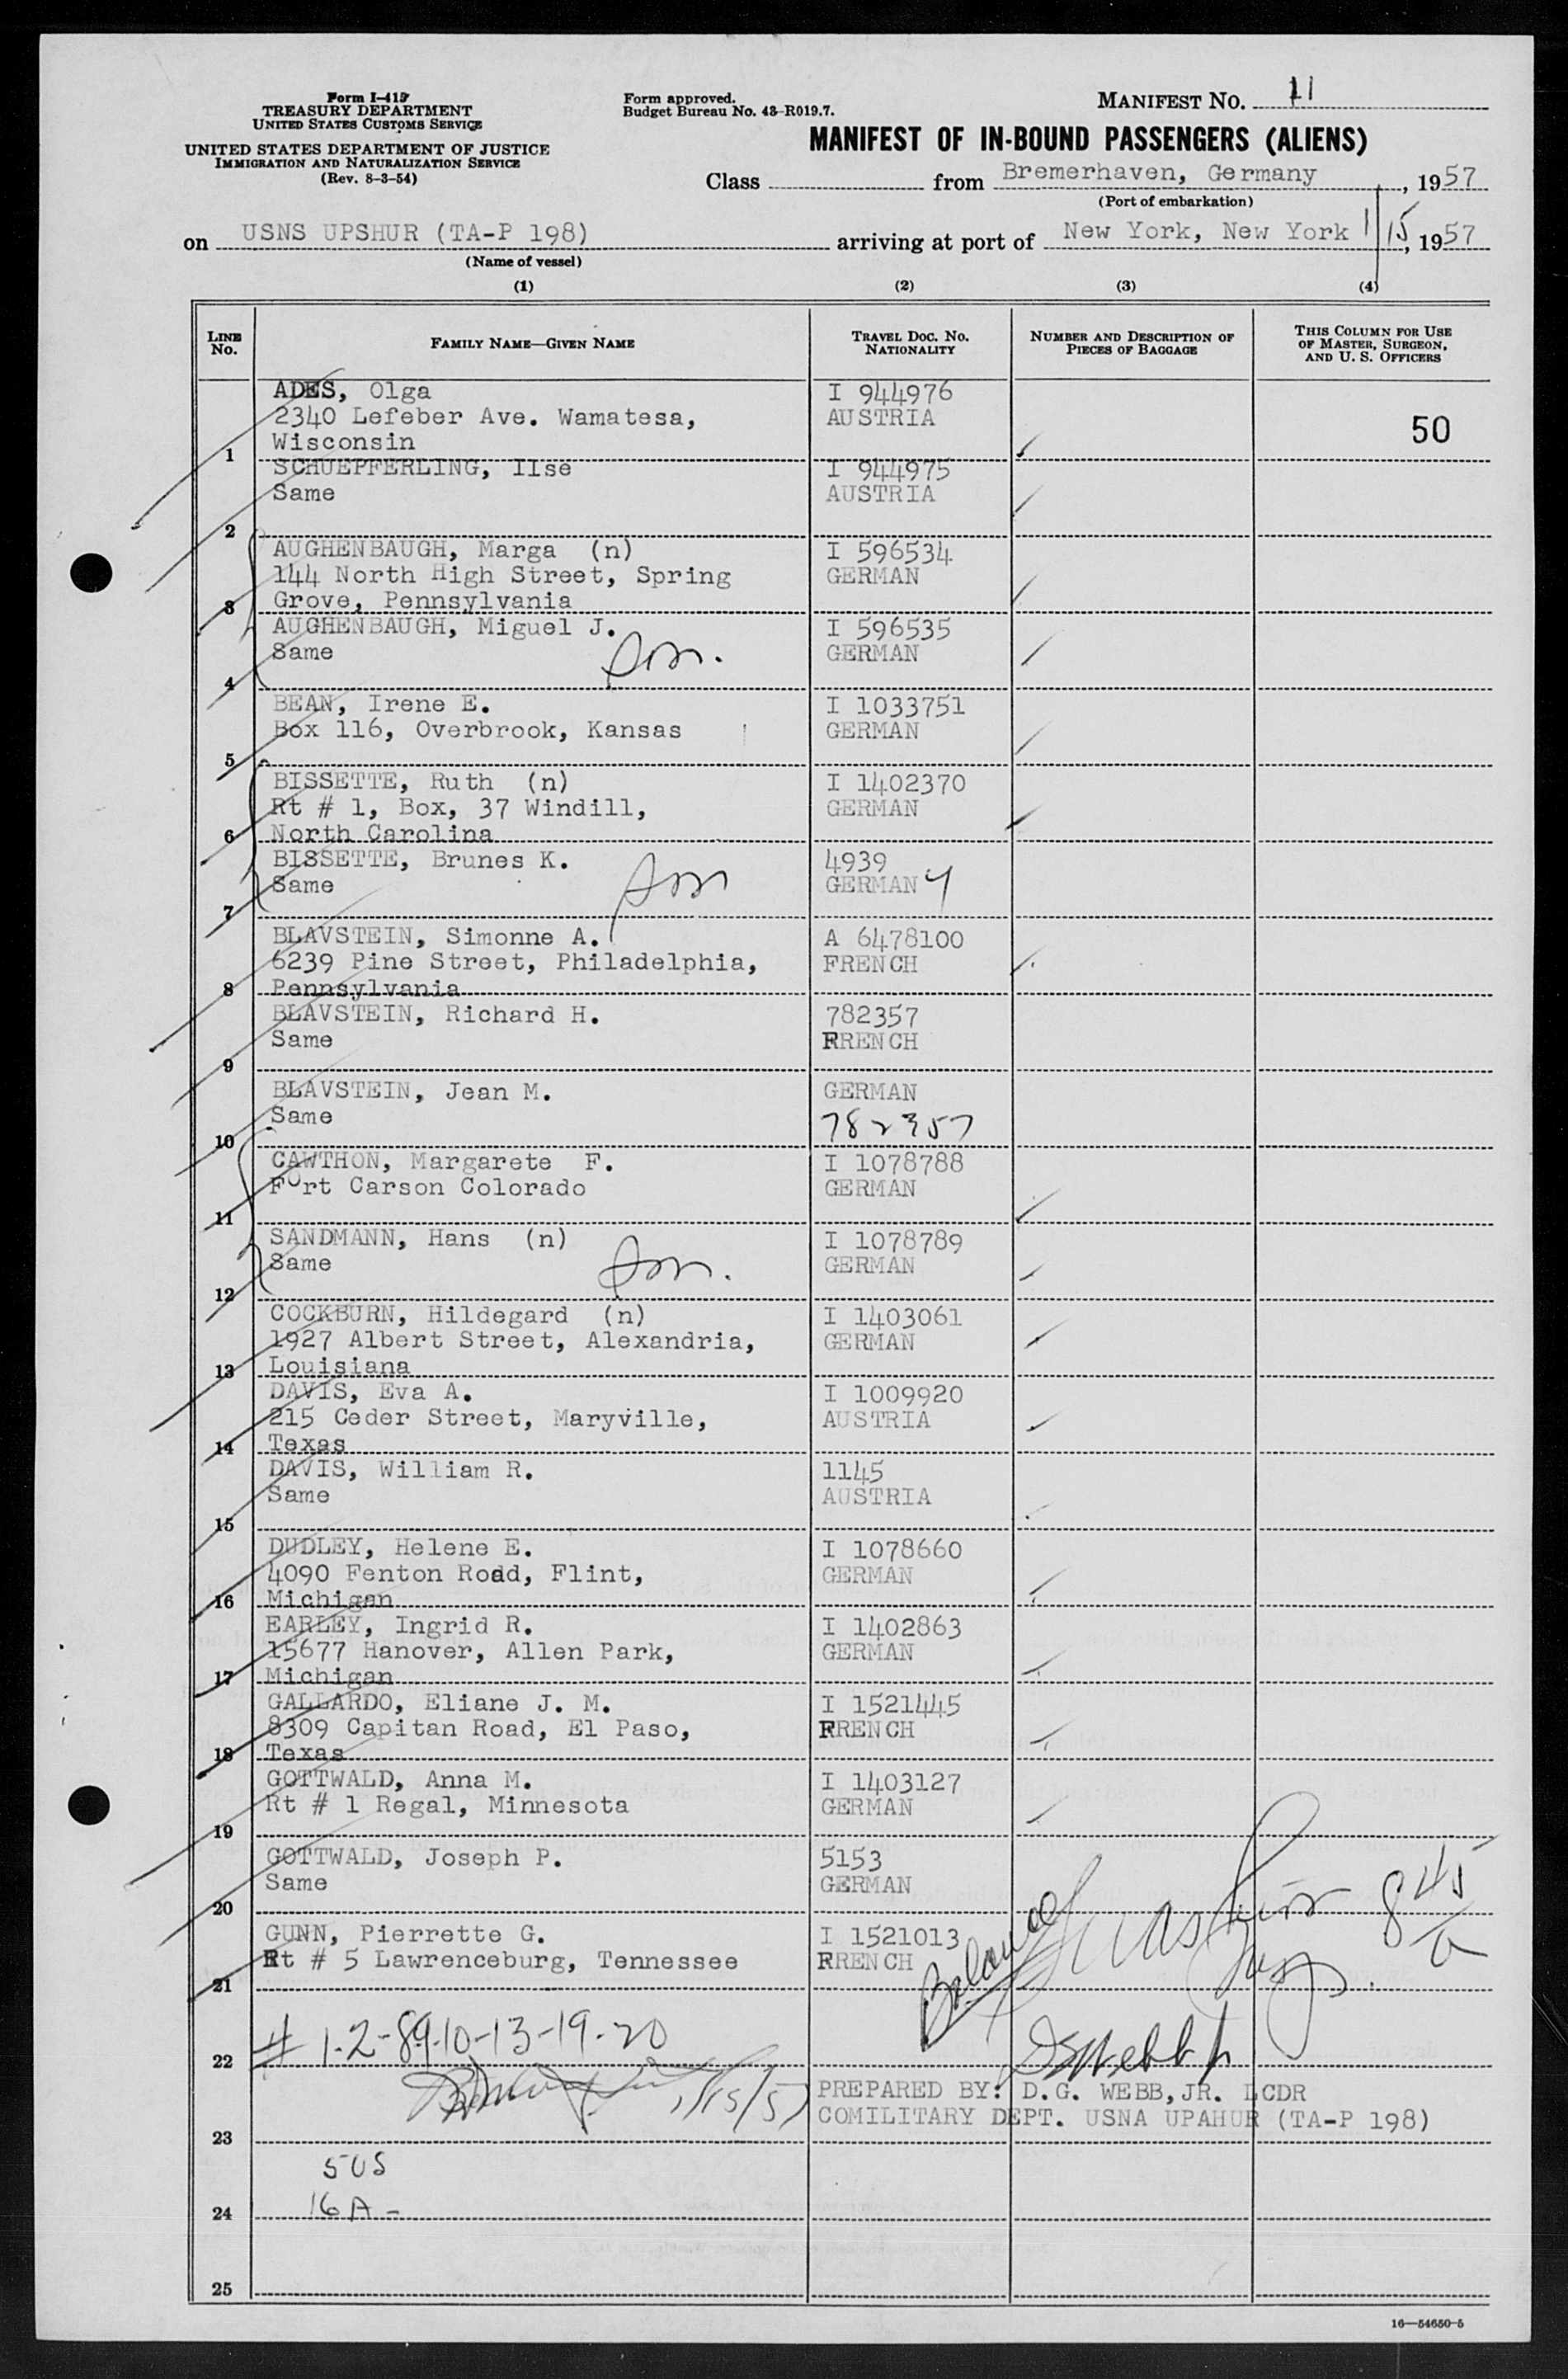 Form I-415
TREASURY DEPARTMENT
UNITED STATES CUSTOMS SERVICE
UNITED STATES DEPARTMENT OF JUSTICE
IMMIGRATION AND NATURALIZATION SERVICE
(Rev. 8-3-54)
Form approved.
Budget Bureau No. 43-R019.7.
MANIFEST NO. 11
MANIFEST OF IN-BOUND PASSENGERS (ALIENS)
Class from Bremerhaven, Germany, 1957
(Port of embarkation)
on USNS UPSHUR (TA-P 198) arriving at port of New York, New York 1/15, 1957
(Name of vessel)
(1) (2) (3) (4)
LINE No. FAMILY NAME—GIVEN NAME TRAVEL DOC. NO. NATIONALITY NUMBER AND DESCRIPTION OF PIECES OF BAGGAGE THIS COLUMN FOR USE OF MASTER, SURGEON, AND U. S. OFFICERS
ADES, Olga I 944976
2340 Lefeber Ave. Wamatesa, AUSTRIA 50
1 Wisconsin
SCHUEPFERLING, IIse I 944975
Same AUSTRIA
2
AUGHENBAUGH, Marga (n) I 596534
144 North High Street, Spring GERMAN
3 Grove, Pennsylvania
AUGHENBAUGH, Miguel J. I 596535
Same son. GERMAN
4
BEAN, Irene E. I 1033751
Box 116, Overbrook, Kansas GERMAN
5
BISSETTE, Ruth (n) I 1402370
Rt # 1, Box, 37 Windill, GERMAN
6 North Carolina
BISSETTE, Brunes K. 4939
Same son GERMAN 4
7
BLAVSTEIN, Simonne A. A 6478100
6239 Pine Street, Philadelphia, FRENCH
8 Pennsylvania
BLAVSTEIN, Richard H. 782357
Same FRENCH
9
BLAVSTEIN, Jean M. GERMAN
Same 782357
10
CAWTHON, Margarete F. I 1078788
Fort Carson Colorado GERMAN
11
SANDMANN, Hans (n) I 1078789
Same son. GERMAN
12
COCKBURN, Hildegard (n) I 1403061
1927 Albert Street, Alexandria, GERMAN
13 Louisiana
DAVIS, Eva A. I 1009920
215 Ceder Street, Maryville, AUSTRIA
14 Texas
DAVIS, William R. 1145
Same AUSTRIA
15
DUDLEY, Helene E. I 1078660
4090 Fenton Road, Flint, GERMAN
16 Michigan
EARLEY, Ingrid R. I 1402863
15677 Hanover, Allen Park, GERMAN
17 Michigan
GALLARDO, Eliane J. M. I 1521445
8309 Capitan Road, El Paso, FRENCH
18 Texas
GOTTWALD, Anna M. I 1403127
Rt # 1 Regal, Minnesota GERMAN
19
GOTTWALD, Joseph P. 5153
Same GERMAN
20
GUNN, Pierrette G. I 1521013
Rt # 5 Lawrenceburg, Tennessee FRENCH
21
Balance
22 # 1-2-8-9-10-13-19-20
1/15/57
PREPARED BY: D.G. WEBB, JR. LCDR
COMILITARY DEPT. USNA UPAHUR (TA-P 198)
23
5 US
24 16 A-
25
16—54650-5